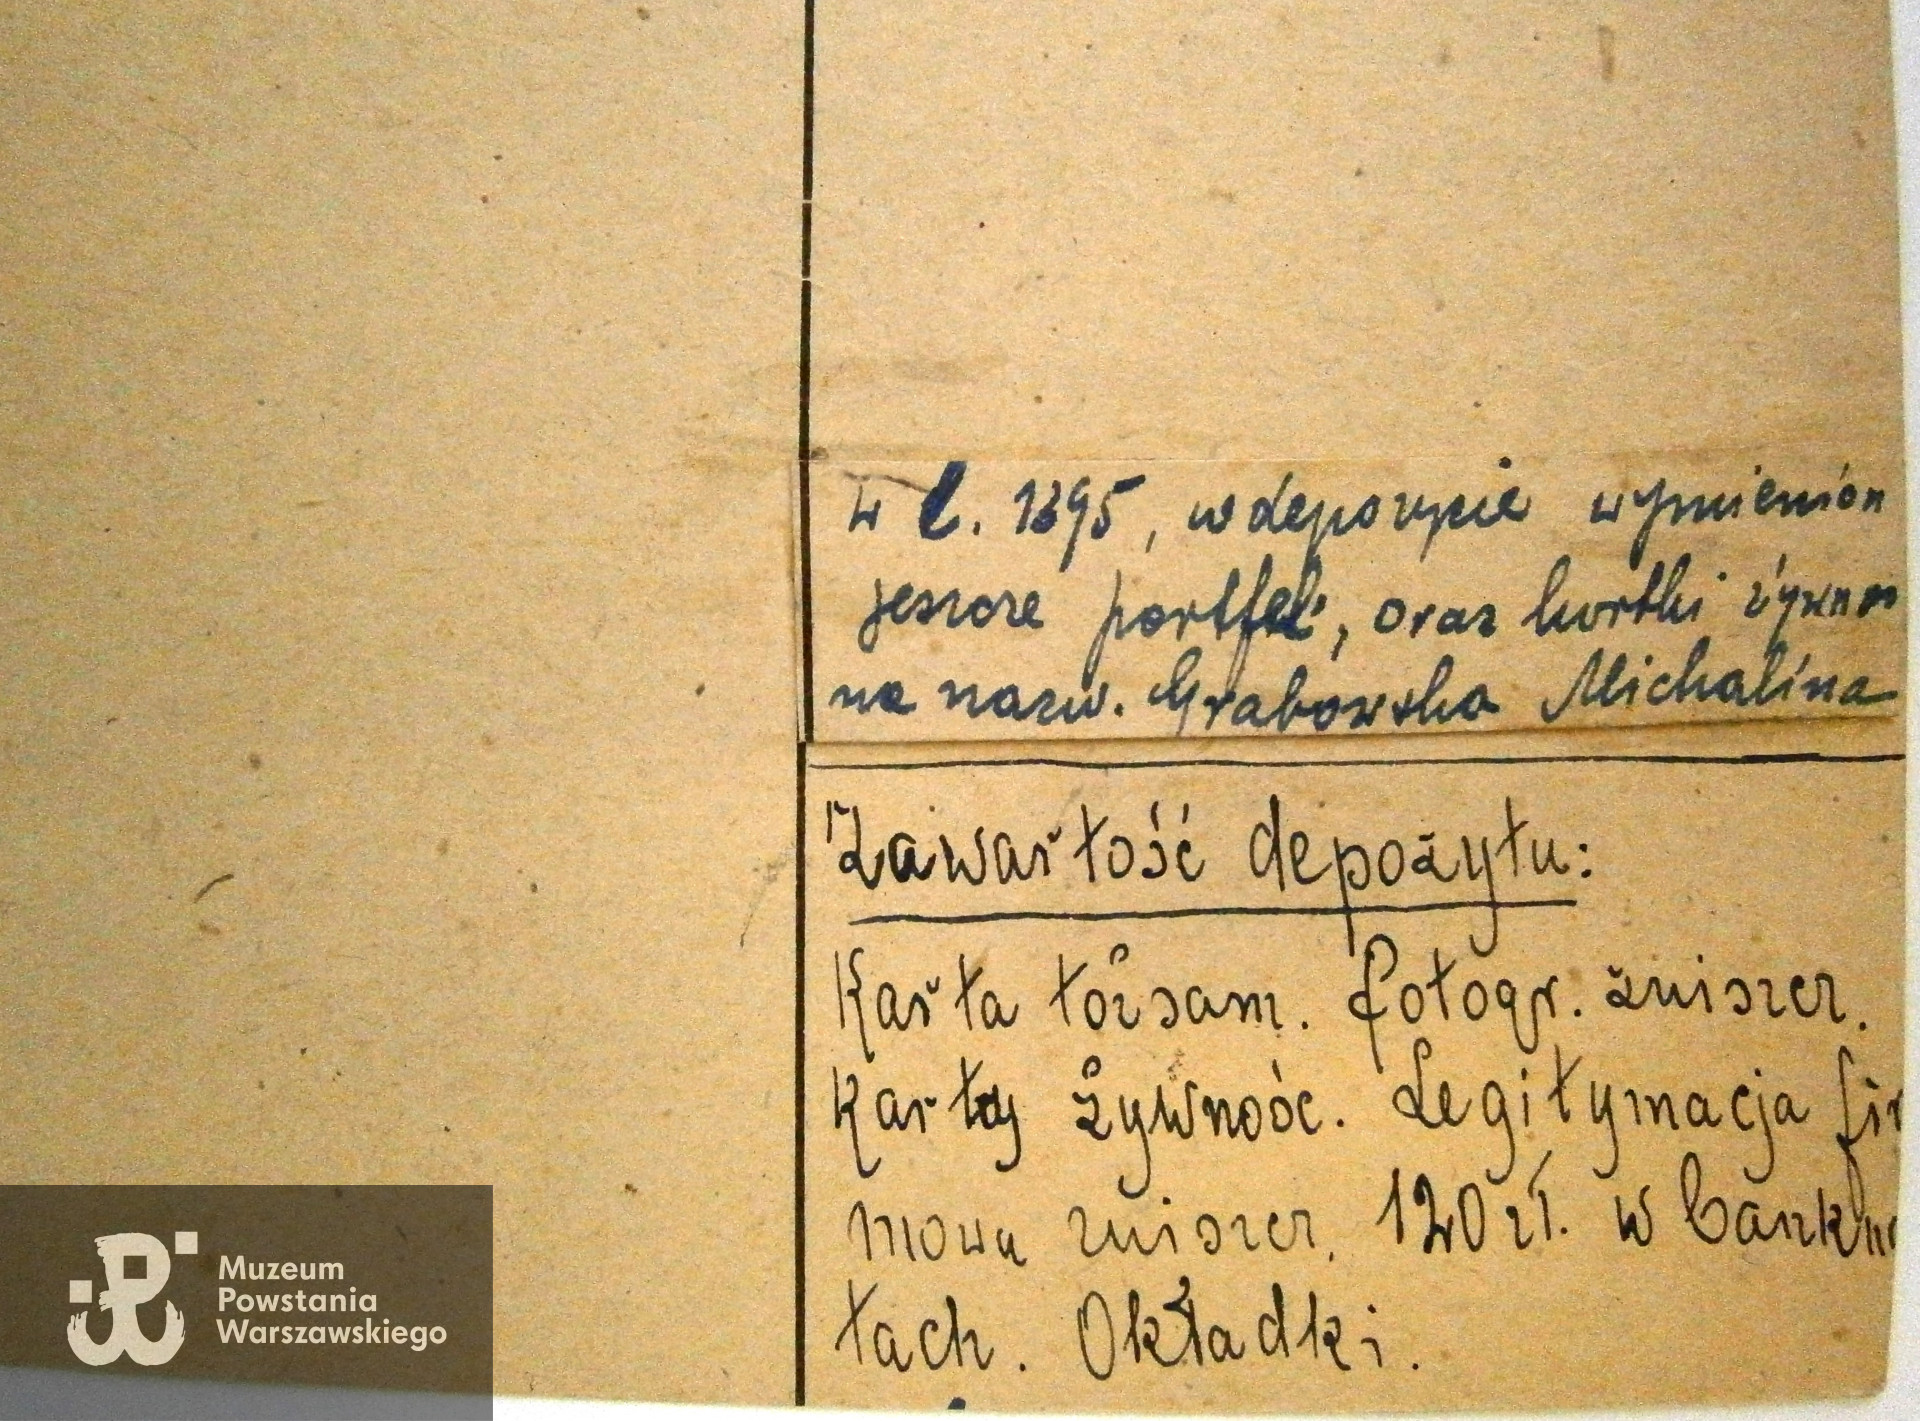 w l. 1395, w depozycie wymienion
jeszcze portfel, oraz kartki żywno
na nazw. Grabowska Michalina
Zawartość depozytu:
Karta tożsam. fotogr. zniszcz.
Karty żywnośc. Legitymacja fir
mowa zniszcz. 120 zł. w bankno
tach. Okładki.
Muzeum
Powstania
Warszawskiego